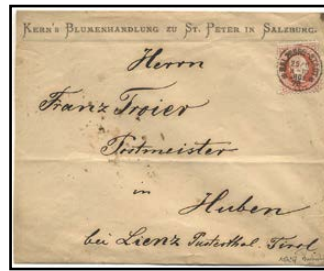 KERN'S BLUMENHANDLUNG ZU ST. PETER IN SALZBURG.
Herrn
Franz Troier
Postmeister
in
Huben
bei Lienz Pusterthal. Tirol